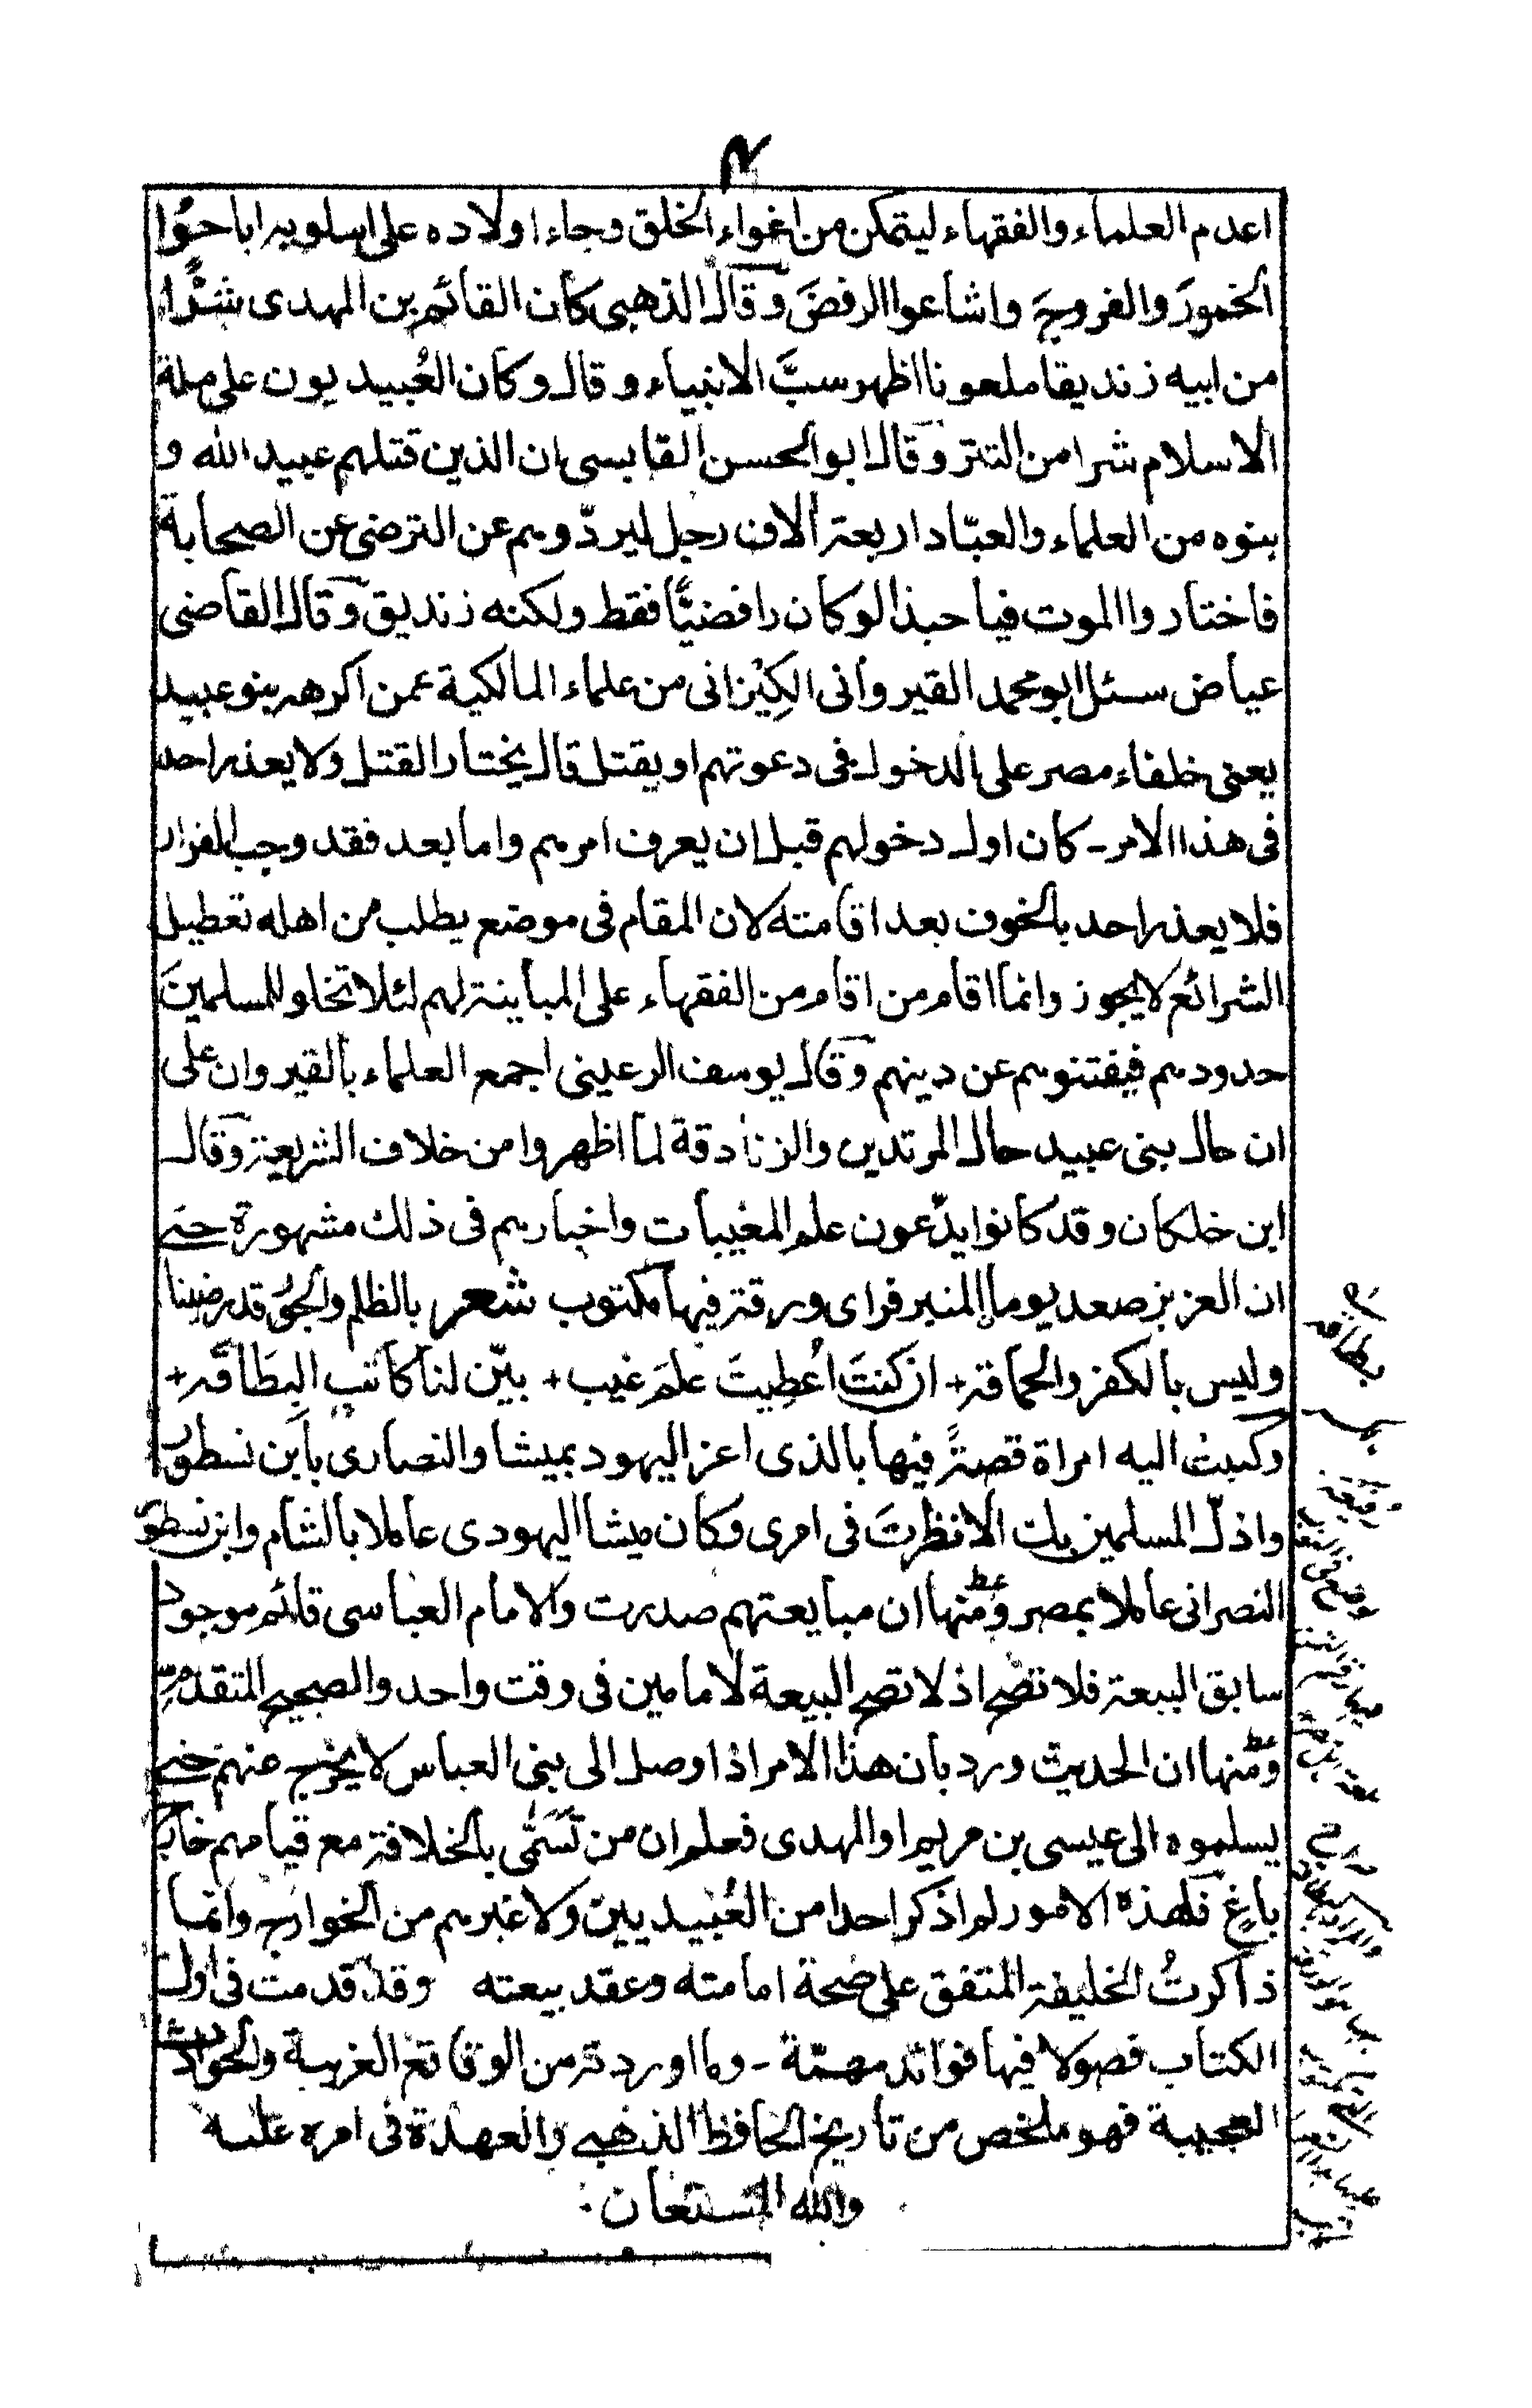 ٤
اعدم العلماء والفقهاء ليتمكن من اغواء الخلق وجاء اولاده على اسلوبه اباحوُا
الخمورَ والفروجَ واشاعوا الرفضَ وقال الذهبى كان القائم بن المهدى شرًّا
من ابيه زنديقا ملعونا اظهر سبَّ الانبياء وقال وكان العُبيديون على ملة
الاسلام شرا من التتر وقال ابو الحسن القابسى ان الذين قتلهم عبيد الله و
بنوه من العلماء والعبّاد اربعة آلاف رجل ليردّوهم عن الترضى عن الصحابة
فاختاروا الموت فيا حبذا لو كان رافضيًّا فقط ولكنه زنديق وقال القاضى
عياض سئل ابو محمد القيروانى الكِيْزانى من علماء المالكية عمن اكرهه بنو عبيد
يعنى خلفاء مصر على الدخول فى دعوتهم او يقتل قال يختار القتل ولا يعذر احد
فى هذا الامر - كان اول دخولهم قبل ان يعرف امرهم واما بعد فقد وجب الفرار
فلا يعذر احد بالخوف بعد اقامته لان المقام فى موضع يطلب من اهله تعطيل
الشرائع لا يجوز وانما اقام من اقام من الفقهاء على المباينة لهم لئلا تخلو للمسلمينَ
حدودهم فيفتنوهم عن دينهم وقال يوسف الرعينى اجمع العلماء بالقيروان على
ان حال بنى عبيد حال المرتدين والزنادقة لما اظهروا من خلاف الشريعة وقال
ابن خلكان وقد كانوا يدّعون علم المغيبات واخبارهم فى ذلك مشهورة حتى
ان العزيز صعد يوما المنبر فراى ورقة فيها مكتوب شعر بالظلم والجوُر قد رضينا
وليس بالكفر والحماقة + ان كنتَ اُعطِيتَ علمَ غيب + بيّن لنا كاتب البِطَاقَة +
وكتبت اليه امراة قصةً فيها بالذى اعز اليهود بميشا والنصارى بابن نسطور
واذلّ المسلمين بك الا نظرتَ فى امرى وكان ميشا اليهودى عاملا بالشام وابن نسطور
النصرانى عاملا بمصر ومنها ان مبايعتهم صدرت والامام العباسى قائم موجود
سابق البيعة فلا تصح اذ لا تصح البيعة لامامين فى وقت واحد والصحيح المتقدم
ومنها ان الحديث ورد بان هذا الامر اذا وصل الى بنى العباس لا يخرج عنهم حتى
يسلموه الى عيسى بن مريم او المهدى فعلم ان من تَسَمّٰى بالخلافة مع قيامهم خارج
باغٍ فلهذه الامور لم اذكر احدا من العُبيديين ولا غيرهم من الخوارج وانما
ذاكرتُ الخليفة المتفق على صحة امامته وعقد بيعته وقد قدمت فى اول
الكتاب فصولا فيها فوائد مهمّة - وما اوردته من الوقائع الغريبة والحوادث
العجيبة فهو ملخص من تاريخ الحافظ الذهبى والعهدة فى امره عليه
والله المستعان :